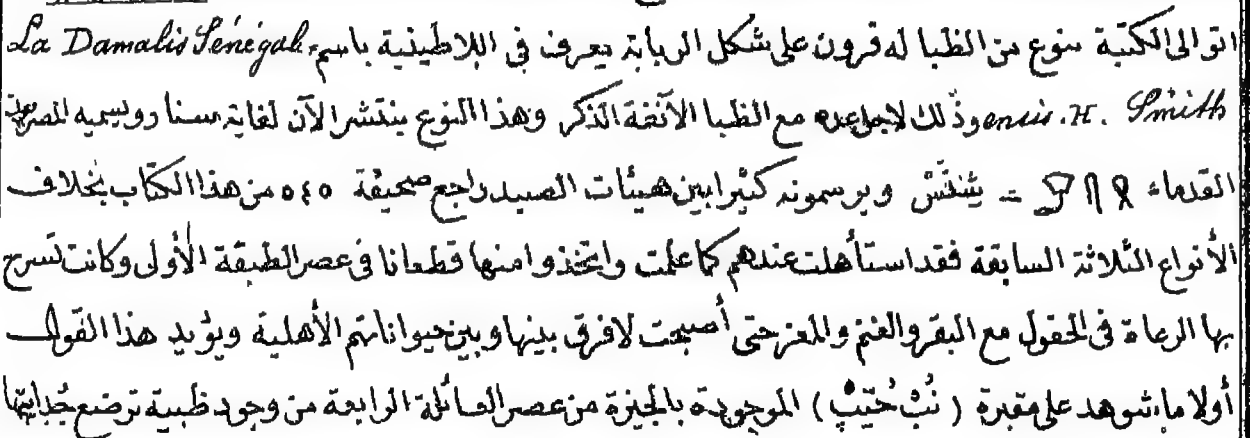 اتوالى الكتبة بنوع من الظبا له قرون على شكل الربابة يعرف فى اللاطينية باسم La Damalis Sénégal
ensis. H. Smith وذلك لاجل عده مع الظبا الآنفة الذكر وهذا النوع ينتشر الآن لغاية سنار ويسميه المصريون
القدماء شنش ويرسمونه كثيرا بين هيئات الصيد راجع صحيفة ٥٤٥ من هذا الكتاب بخلاف
الأنواع الثلاثة السابقة فقد استأهلت عندهم كما علمت واتخذوا منها قطعانا فى عصر الطبقة الأولى وكانت تسرح
بها الرعاة فى الحقول مع البقر والغنم والمعز حتى أصبحت لا فرق بينها وبين حيواناتهم الأهلية ويؤيد هذا القول
أولا ما شوهد على مقبرة ( نُبْ حُتَبْ ) الموجودة بالجيزة من عصر العائلة الرابعة من وجود ظبية ترضع جدايتها